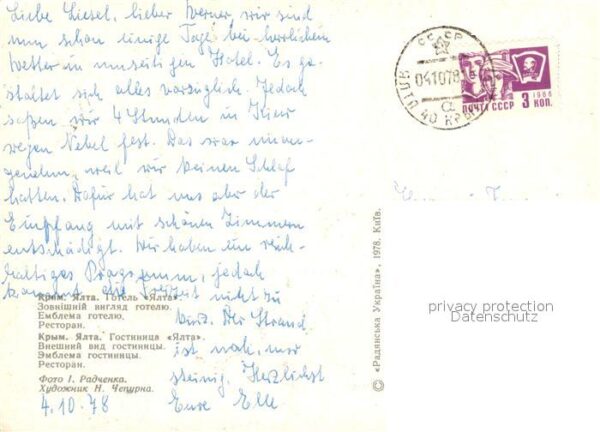 Liebe Liesel, lieber Werner, wir sind
nun schon einige Tage bei herrlichem
Wetter in umseitigen Hotel. Es ge-
staltet sich alles vorzüglich. Jedoch
saßen wir 4 Stunden in Kiew
wegen Nebel fest. Das war unan-
genehm, weil wir keinen Schlaf
hatten. Dafür hat uns aber der
Empfang mit schönen Zimmern
entschädigt. Wir haben ein reich-
haltiges Programm, jedoch
kommt die Freizeit nicht zu
kurz. Der Strand
ist nah, nur
steinig. Herzlichst
Eure Elli
4.10.78
Крим. Ялта. Готель «Ялта».
Зовнішній вигляд готелю.
Емблема готелю.
Ресторан.
Крым. Ялта. Гостиница «Ялта».
Внешний вид гостиницы.
Эмблема гостиницы.
Ресторан.
Фото І. Радченка.
Художник Н. Чепурна.
© «Радянська Україна», 1978. Київ.
СССР
041078
ПОЧТА СССР 3 КОП.
1966
privacy protection
Datenschutz